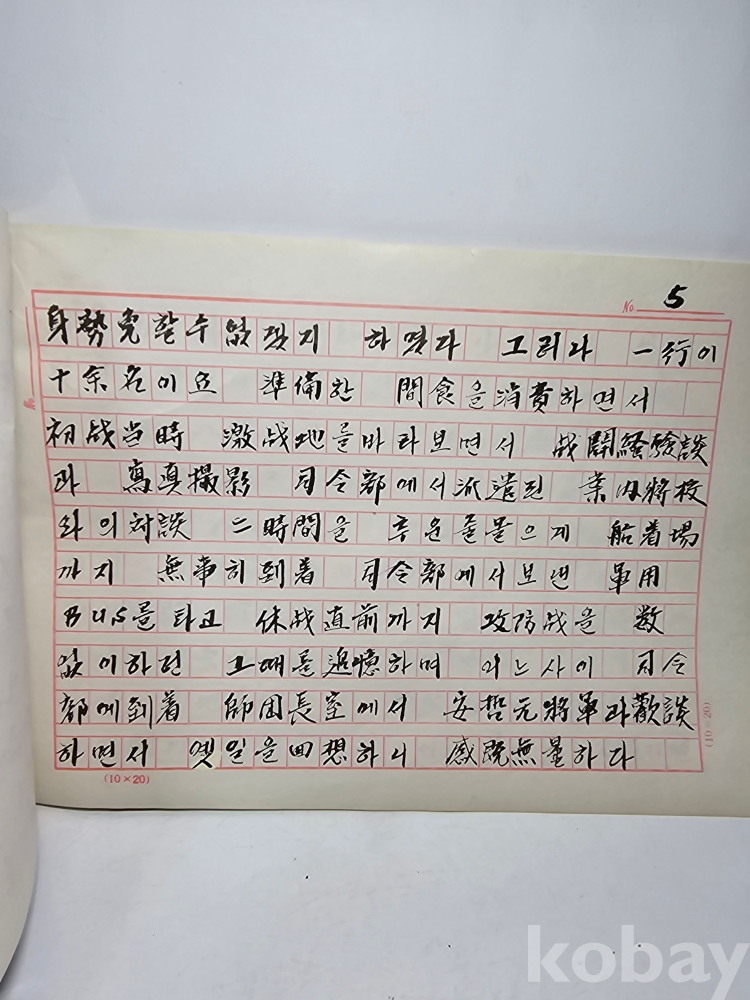 No. 5
身勢免할수없겠지 하였다 그러나 一行이
十余名이요 準備한 間食을消費하면서
初战当時 激战地를바라보면서 战鬪經驗談
과 寫眞撮影 司令部에서派遣된 案內將校
와의対談 二時間을 흐른줄몰으게 船着場
까지 無事히到着 司令部에서보낸 軍用
BUS를타고 休战直前까지 攻防战을 数
없이하던 그때를追憶하며 어느사이 司令
部에到着 師団長室에서 安哲元將軍과歡談
하면서 옛일을回想하니 感慨無量하다
(10×20)
(10×20)
kobay